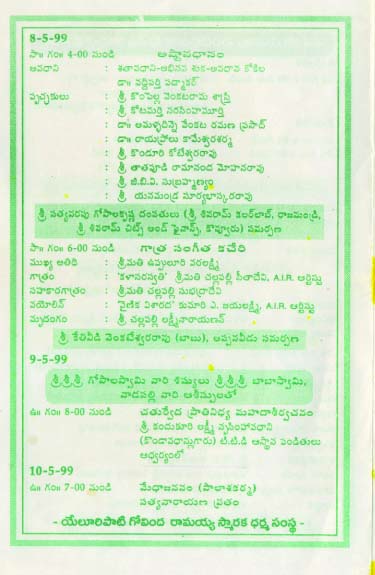 8-5-99
సా॥ గం॥ 4-00 నుండి అష్టావధానం
అవధాని : శతావధాని-అభినవ శుక-అవధాన కోకిల
డా॥ వద్దిపర్తి పద్మాకర్
పృచ్ఛకులు : శ్రీ కొంపెల్ల వెంకటరామ శాస్త్రి
: శ్రీ కోటమర్తి నరసింహమూర్తి
: డా॥ అమళ్ళదిన్నె వెంకట రమణ ప్రసాద్
: డా॥ రాయప్రోలు కామేశ్వరశర్మ
: శ్రీ కొండూరి కోటేశ్వరరావు
: శ్రీ తాతపూడి రామానంద మోహనరావు
: శ్రీ జి.బి.వి. సుబ్రహ్మణ్యం
: శ్రీ యనమండ్ర సూర్యభాస్కరరావు
శ్రీ సత్యవరపు గోపాలకృష్ణ దంపతులు (శ్రీ శివరామ్ కలర్‌లాబ్, రాజమండ్రి,
శ్రీ శివరామ్ చిట్స్ అండ్ ఫైనాన్స్, కొవ్వూరు) సమర్పణ
సా॥ గం॥ 6-00 నుండి గాత్ర సంగీత కచేరి
ముఖ్య అతిథి : శ్రీమతి ఉప్పులూరి వరలక్ష్మి
గాత్రం : 'కళాసరస్వతి' శ్రీమతి చల్లపల్లి సీతాదేవి, A.I.R. ఆర్టిస్టు
సహకారగాత్రం : శ్రీమతి చల్లపల్లి సుభద్రాదేవి
వయోలిన్ : 'వైణిక విశారద' కుమారి ఎ. జయలక్ష్మి, A.I.R. ఆర్టిస్టు
మృదంగం : శ్రీ చల్లపల్లి లక్ష్మీనారాయణన్
శ్రీ కేతివీడి వెంకటేశ్వరరావు (బాబు), అప్పనవీడు సమర్పణ
9-5-99
శ్రీశ్రీశ్రీ గోపాలస్వామి వారి శిష్యులు శ్రీశ్రీశ్రీ బాబాస్వామి,
వాడపల్లి వారి ఆశీస్సులతో
ఉ॥ గం॥ 8-00 నుండి చతుర్వేద ప్రాతినిధ్య మహదాశీర్వచనం
శ్రీ కందుకూరి లక్ష్మీ నృసింహావధాని
(కొండావధాన్లుగారు) టి.టి.డి ఆస్థాన పండితులు
ఆధ్వర్యంలో
10-5-99
ఉ॥ గం॥ 7-00 నుండి మేధాజననం (పాలాశకర్మ)
సత్యనారాయణ వ్రతం
- యేలూరిపాటి గోవింద రామయ్య స్మారక ధర్మ సంస్థ -